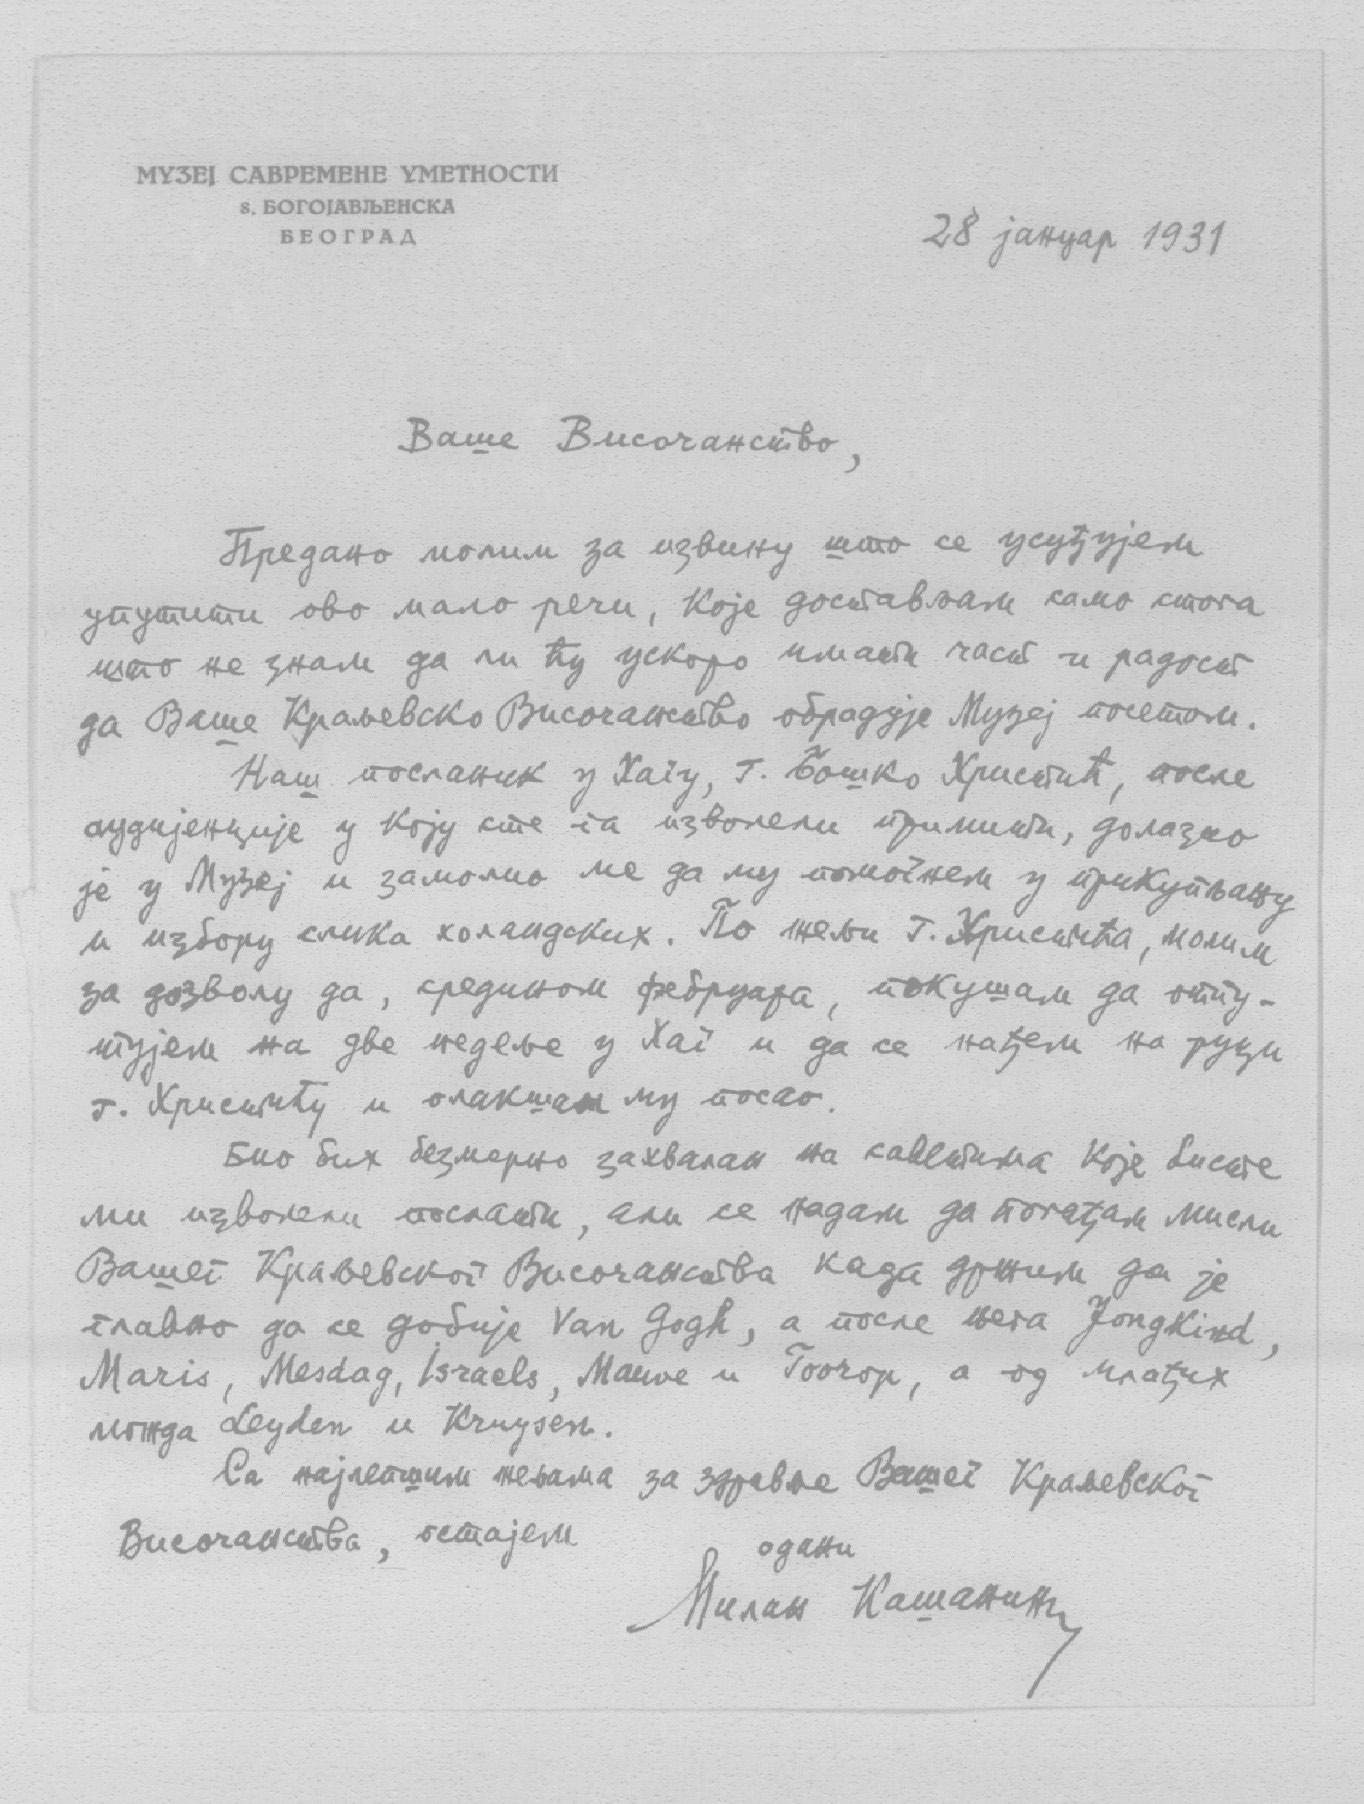 МУЗЕЈ САВРЕМЕНЕ УМЕТНОСТИ
8. БОГОЈАВЉЕНСКА
БЕОГРАД
28 јануар 1931
Ваше Височанство,
Предано молим за извињу што се усуђујем
упутити ово мало речи, које достављам само стога
што не знам да ли ћу ускоро имати част и радост
да Ваше Краљевско Височанство обрадује Музеј посетом.
Наш посланик у Хагу, г. Бошко Христић, после
аудијенције у коју сте га изволели примити, долазио
је у Музеј и замолио ме да му помогнем у прикупљању
и избору слика холандских. По жељи г. Христића, молим
за дозволу да, средином фебруара, покушам да отпу-
тујем на две недеље у Хаг и да се нађем на руци
г. Христићу и олакшам му посао.
Био бих безмерно захвалан на саветима које бисте
ми изволели послати, али се надам да погађам мисли
Вашег Краљевског Височанства када држим да је
главно да се добије Van Gogh, а после њега Jongkind,
Maris, Mesdag, Israels, Mauve и Тоогор, а од млађих
можда Leyden и Kruysen.
Са најлепшим жељама за здравље Вашег Краљевског
Височанства, остајем
одани
Милан Кашанин